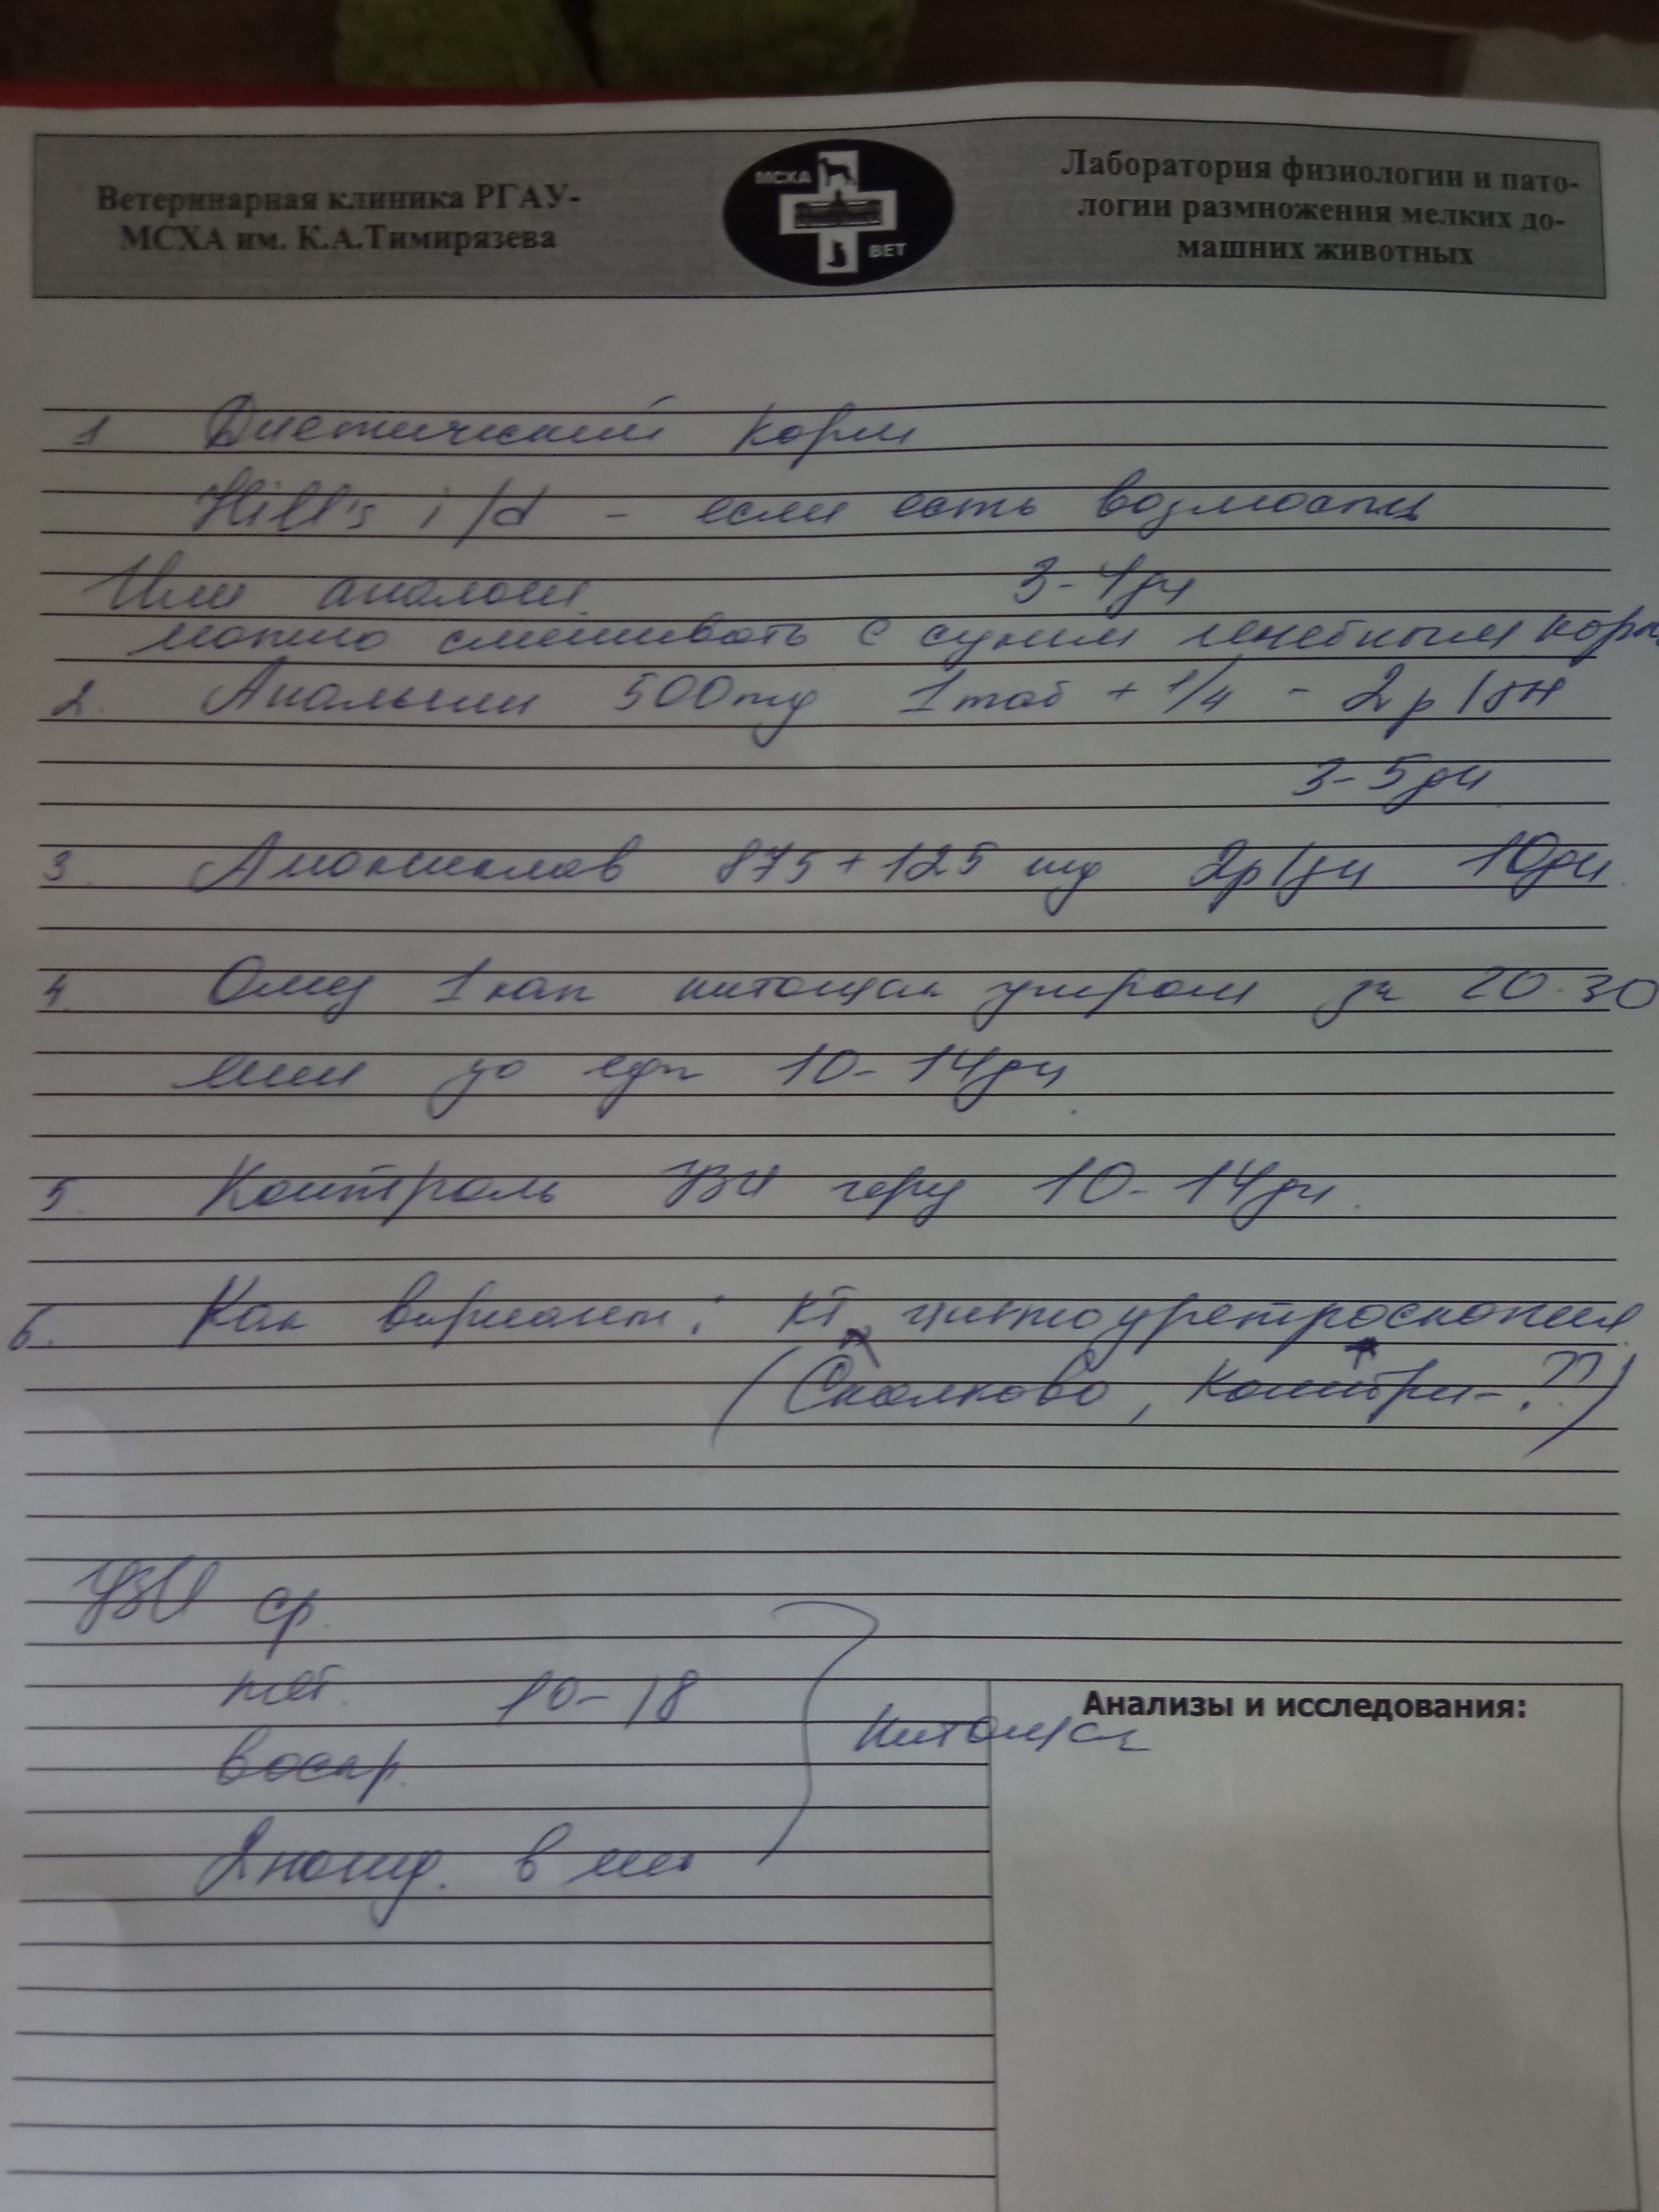 Ветеринарная клиника РГАУ-
МСХА им. К.А.Тимирязева
МСХА
ВЕТ
Лаборатория физиологии и пато-
логии размножения мелких до-
машних животных
1 Диетический корм
Hill's i/d - если есть
Или аналоги 3-4дн
можно смешивать с сухим лечебным корм
2. Анальгин 500mg 1таб + 1/4 - 2р/дн
3-5дн
3. Амоксиклав 875+125 mg 2р/дн 10дн.
4. Омез 1кап натощак утром за 20-30
мин до еды 10-14дн.
5. Контроль УЗИ через 10-14дн.
6. Как вариант: КТ, цистоуретроскопия
(Сколково, Контри-??)
УЗИ ср.
пят. 10-18
воскр.
натощак
в мес
Анализы и исследования: